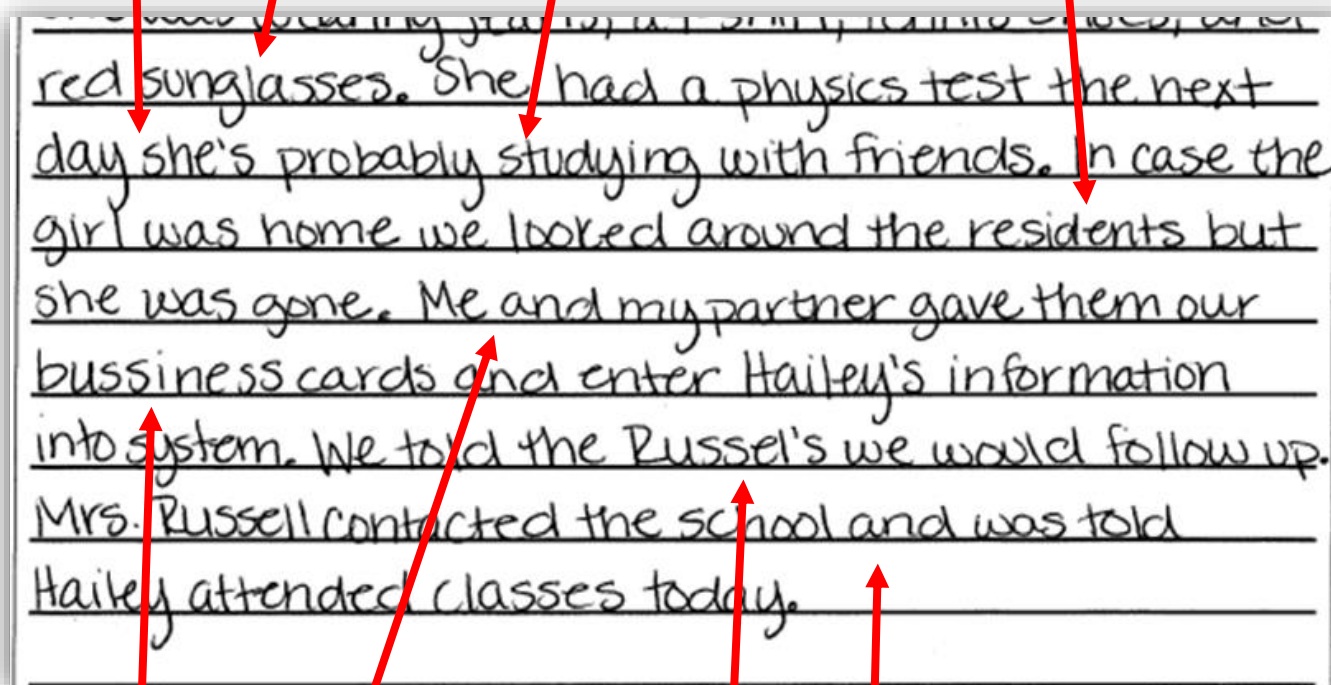 she was wearing jeans, a t-shirt, tennis shoes, and
red sunglasses. She had a physics test the next
day she's probably studying with friends. In case the
girl was home we looked around the residents but
she was gone. Me and my partner gave them our
bussiness cards and enter Hailey's information
into system. We told the Russel's we would follow up.
Mrs. Russell contacted the school and was told
Hailey attended classes today.